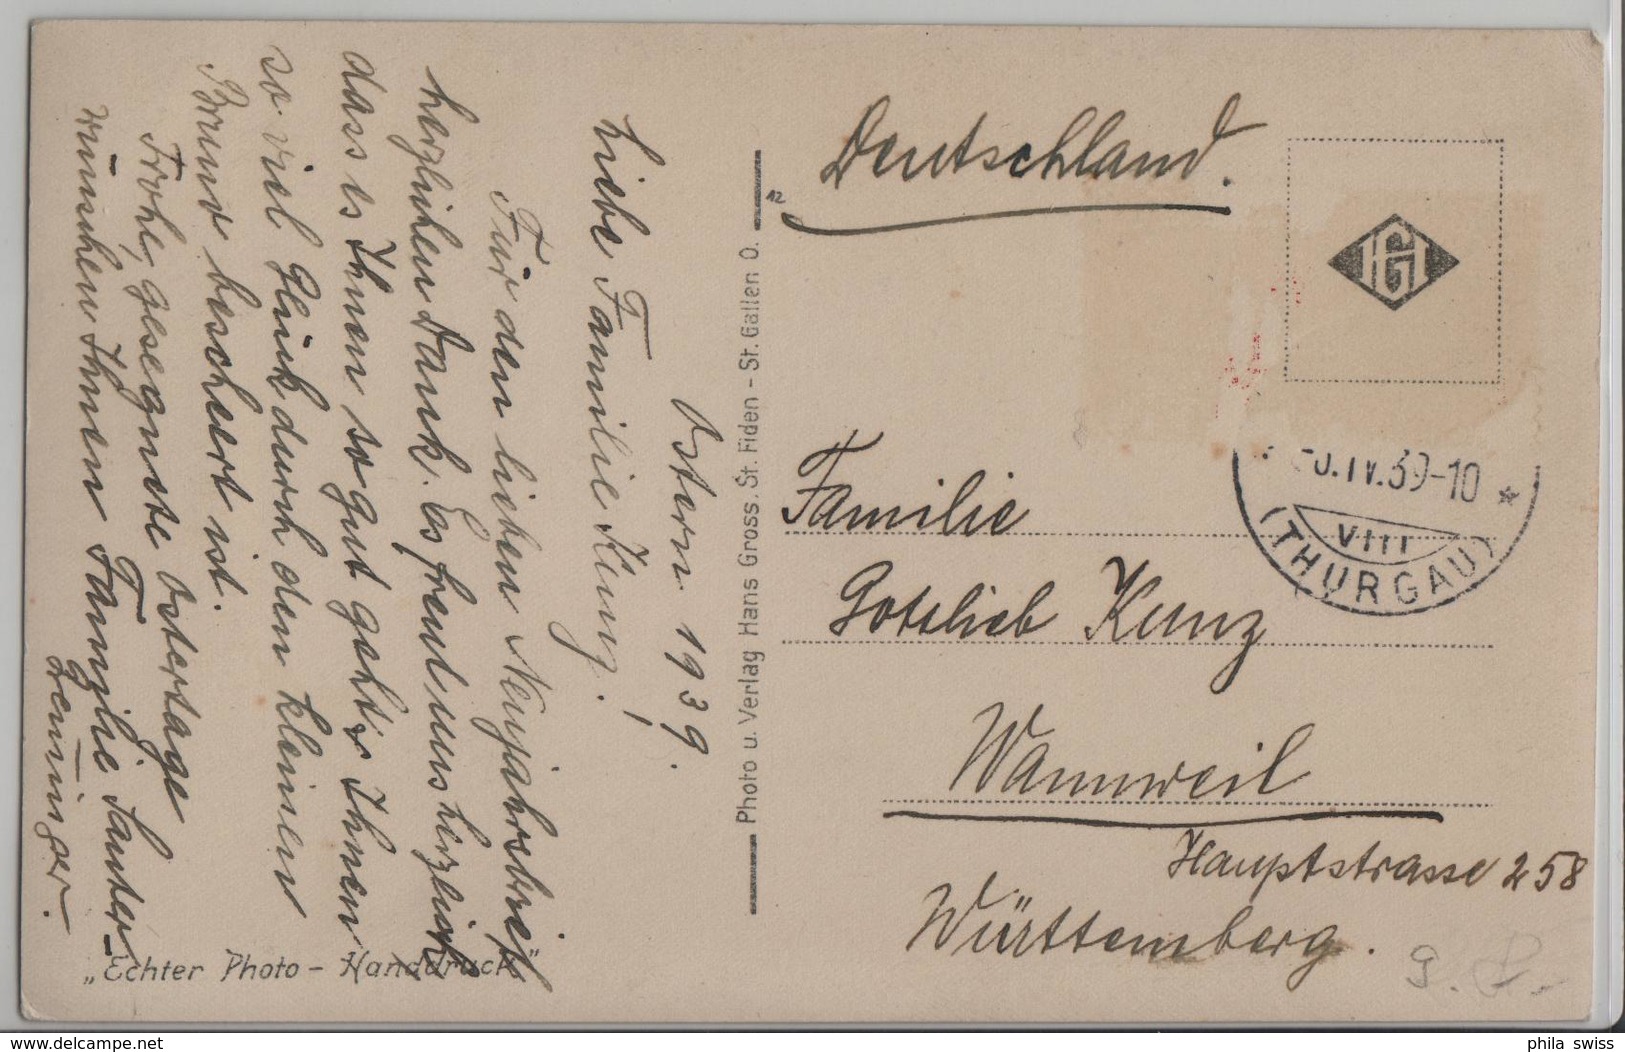 Ostern 1939.
Liebe Familie Kunz!
Für den lieben Neujahrsbrief
herzlichen Dank. Es freut uns herzlich
dass es Ihnen so gut geht & Ihnen
so viel Glück durch den kleinen
Bruno beschert ist.
Frohe, gesegnete Ostertage
wünschen Ihnen Familie Sauter-
Greminger.
"Echter Photo - Handdruck"
Photo u. Verlag Hans Gross, St. Fiden - St. Gallen O.
12
Deutschland.
HG
.IV.39-10
VIII
(THURGAU)
Familie
Gottlieb Kunz
Wannweil
Hauptstrasse 258
Württemberg.
phila swiss
www.delcampe.net